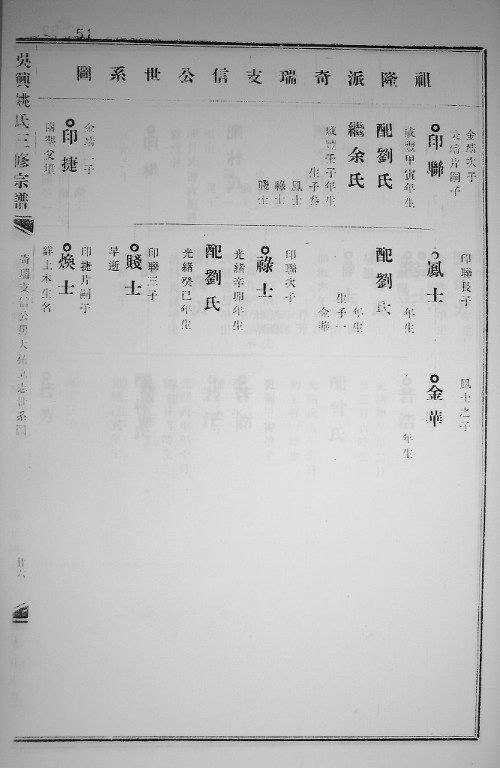 51
祖隆派奇瑞支信公世系圖
金瑞次子
片嗣子
印聯
咸豐甲寅年生
配劉氏
繼余氏
咸豐壬子年生
生子叁
鳳士
祿士
賤士
金瑞子
印捷
印聯長子
鳳士
年生
配劉氏
年生
生子一
金華
印聯次子
祿士
光緒辛卯年生
配劉氏
光緒癸巳年生
印聯三子
賤士
早逝
印捷片嗣子
煥士
詳上本生名
鳳士之子
金華
年生
吳興姚氏三修宗譜
奇瑞支信公
世系圖
廿六